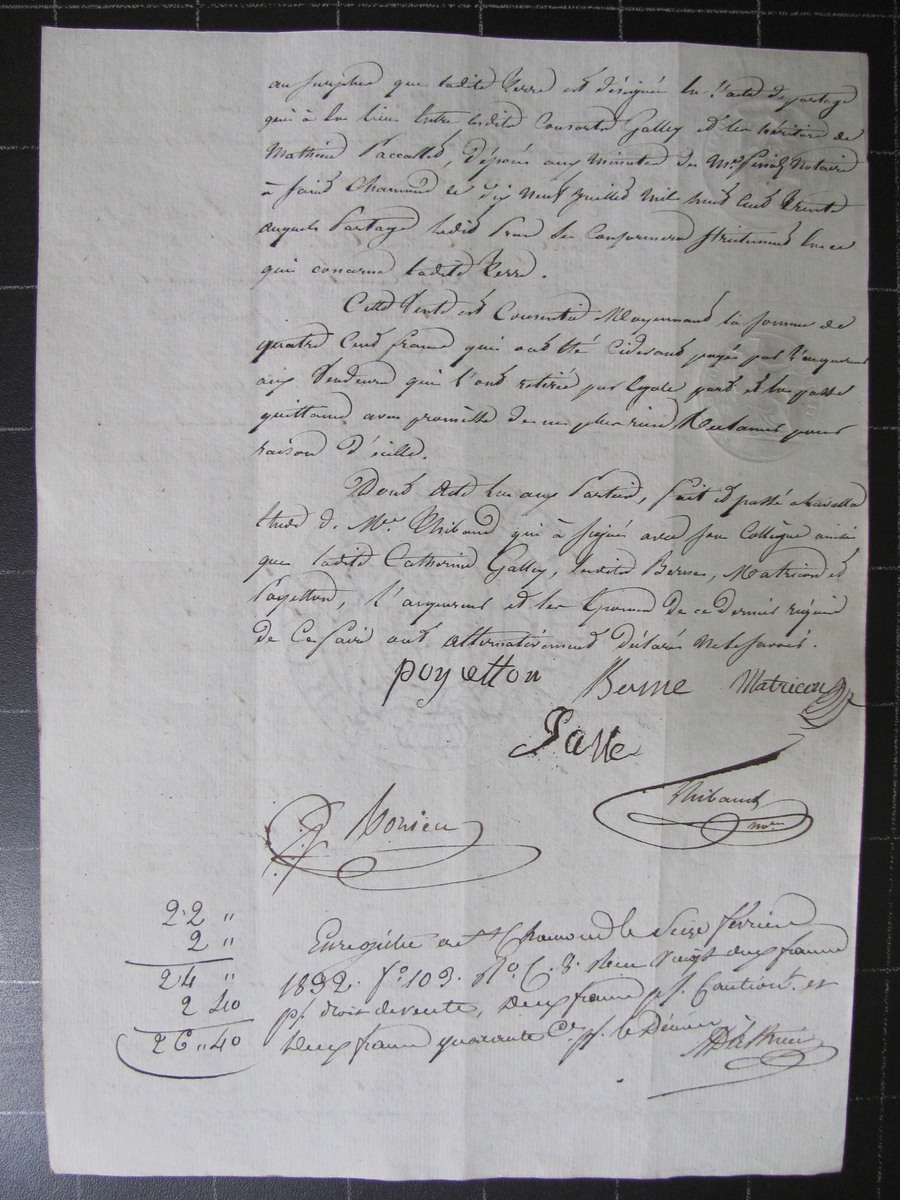 au surplus que ladite Terre est désignée en l'acte de partage
qui à eu lieu Entre ladite Consorte Galley et les héritiers de
Mathieu Paccallet, déposé aux minutes de Me Notaire
à Saint Chamond le dix neuf juillet mil huit cent trente
auquel Partage ledit se Conformera Strictement en ce
qui concerne ladite Terre.
Cette Vente est Consentie Moyennant la somme de
quatre Cent francs qui ont été Cidevant payés par l'acquereur
aux Vendeurs qui l'ont retirée par Egale part et en passe
quittance avec promesse de ne plus rien Réclamer pour
raison d'icelle.
Dont Acte lu aux Parties, fait et passé
Etude de Me Thibaud qui à signé avec son Collègue ainsi
que ladite Catherine Galley, lesdits Berne, Matricon et
Poyetton, l'acquereur et les de ce dernier requis
de Ce faire ont alternativement Déclaré Ne le Savoir.
poyetton Berne Matricon
Thibaud nre
22 "
2 "
24 "
2 40
26 " 40
Enregistré à St Chamond le Seize février
1832. fo 103. Ro C. 3. Reçu Vingt deux francs
pr. droit de vente, deux francs pr. Cautiont. et
deux francs quarante Ces pr. le Dixième